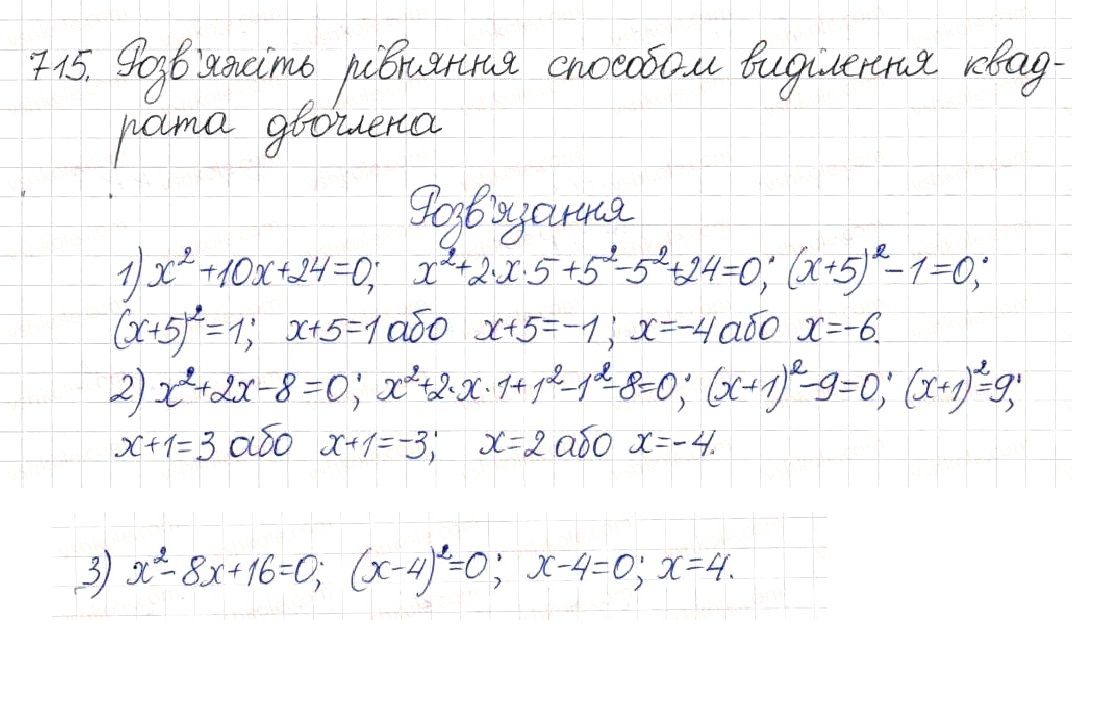 715. Розв'яжіть рівняння способом виділення квад-
рата двочлена
Розв'язання
1) x²+10x+24=0; x²+2·x·5+5²-5²+24=0; (x+5)²-1=0;
(x+5)²=1; x+5=1 або x+5=-1; x=-4 або x=-6.
2) x²+2x-8=0; x²+2·x·1+1²-1²-8=0; (x+1)²-9=0; (x+1)²=9;
x+1=3 або x+1=-3; x=2 або x=-4.
3) x²-8x+16=0; (x-4)²=0; x-4=0; x=4.